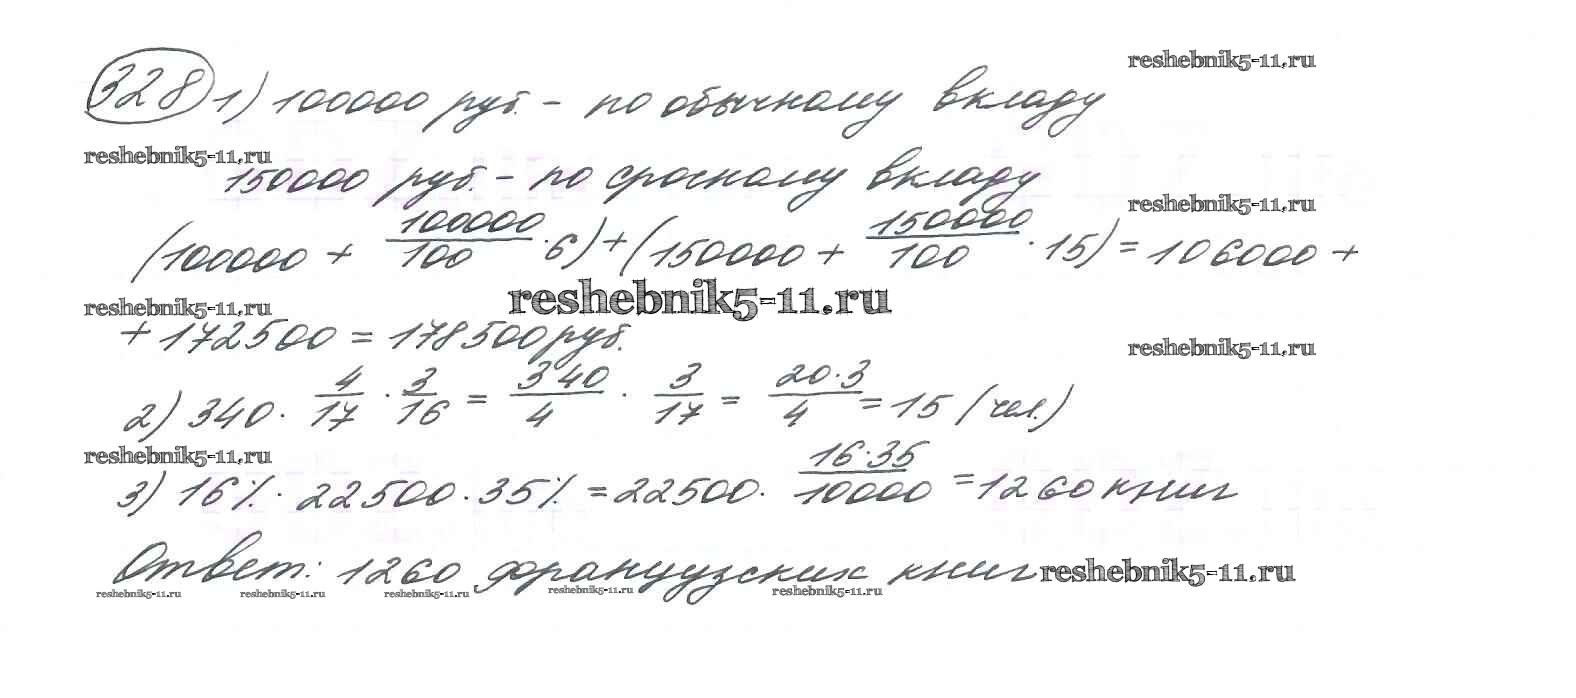 328 1) 100000 руб. - по обычному вкладу
reshebnik5-11.ru
reshebnik5-11.ru
150000 руб. - по срочному вкладу
reshebnik5-11.ru
(100000 + 100000/100 · 6) + (150000 + 150000/100 · 15) = 106000 +
reshebnik5-11.ru
reshebnik5-11.ru
+ 172500 = 178500 руб.
reshebnik5-11.ru
2) 340 · 4/17 · 3/16 = 340/4 · 3/17 = 20·3/4 = 15 (чел.)
reshebnik5-11.ru
3) 16% · 22500 · 35% = 22500 · 16·35/10000 = 1260 книг
Ответ: 1260 французских книг
reshebnik5-11.ru
reshebnik5-11.ru
reshebnik5-11.ru
reshebnik5-11.ru
reshebnik5-11.ru
reshebnik5-11.ru